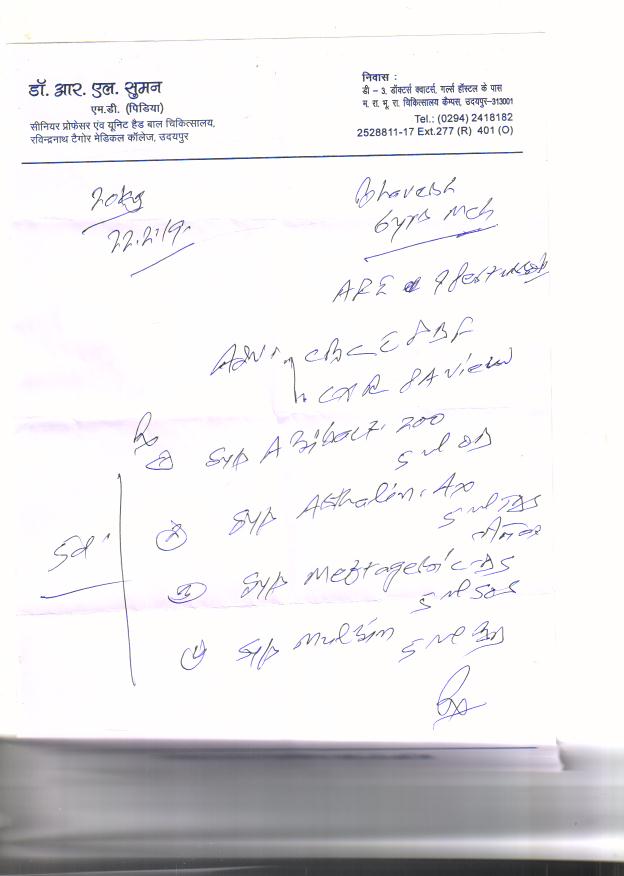 डॉ. आर. एल. सुमन
एम.डी. (पिडिया)
सीनियर प्रोफेसर एंव यूनिट हैड बाल चिकित्सालय,
रविन्द्रनाथ टैगोर मेडिकल कॉलेज, उदयपुर
निवास :
डी – ३, डॉक्टर्स क्वाटर्स, गर्ल्स हॉस्टल के पास
म. रा. भू. रा. चिकित्सालय कैम्पस, उदयपुर–313001
Tel.: (0294) 2418182
2528811-17 Ext.277 (R) 401 (O)
20kg
22.2.19.
Bhavesh
6yrs mch
Adv.
CBC PBF
CXR PA view
Rx
① Syp Azibact. 200
5 ml OD
② Syp Asthalin. Ax
5 ml TDS
③ Syp Meftagesic DS
5 ml SOS
④ Syp
5 ml
5d